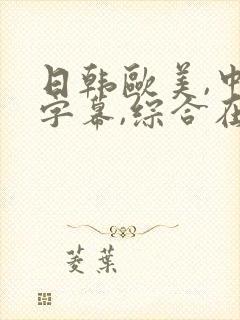 日韩欧美,中
字幕,综合在
菱葉